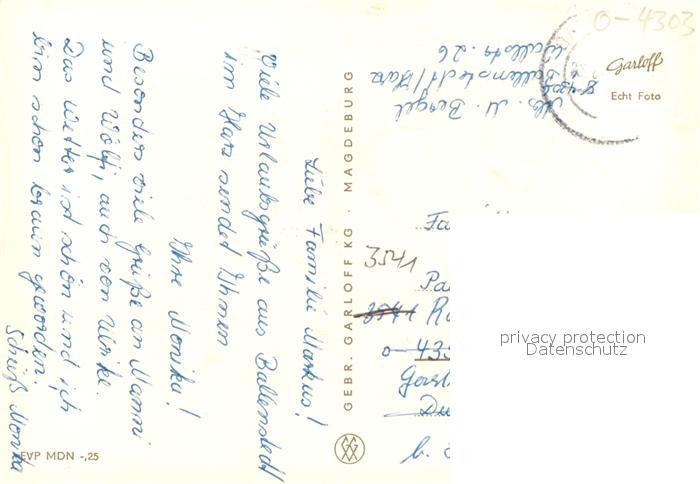 Liebe Familie Markus!
Viele Urlaubsgrüße aus Ballenstedt
im Harz sendet Ihnen
Ihre Monika!
Besonders viele Grüße an Manni
und Wölfi, auch von Ulrike.
Das Wetter ist schön und ich
bin schon braun geworden.
Schüß Monika
EVP MDN -,25
GEBR. GARLOFF KG · MAGDEBURG
Abs. M. Bergel
Ballenstedt/Harz
Wallstr. 26
O-4303
Garloff
Echt Foto
Fa
3541
Pa
3541
O-435
b.
privacy protection
Datenschutz